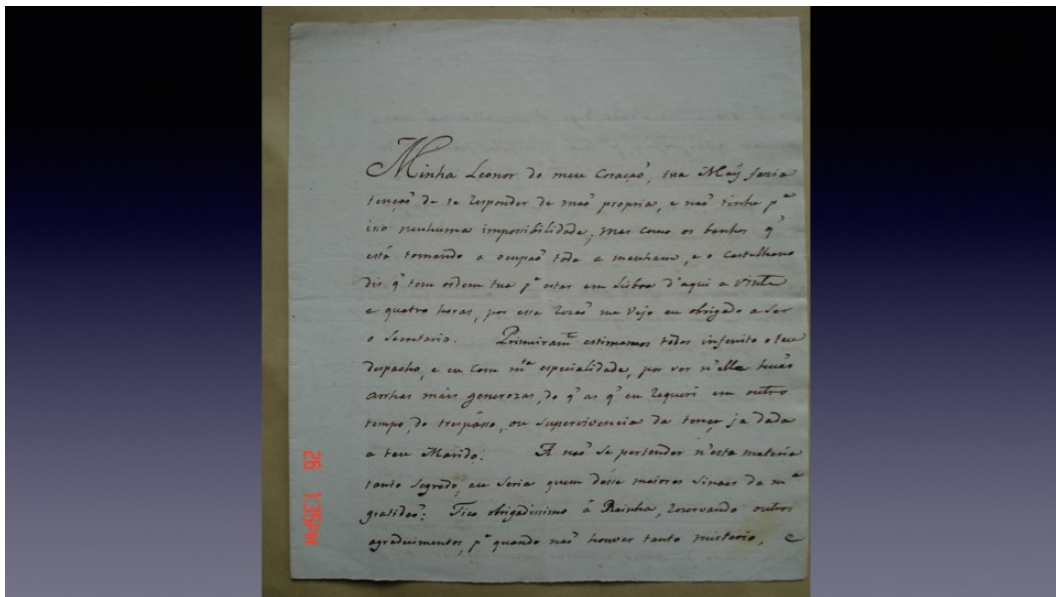 Minha Leonor do meu Coração, tua Maÿ fazia
tenção de te responder de mão propria, e não tinha pª
isso nenhuma impossibilidade, mas como os banhos q̃
está tomando a occupão toda a manham, e o Castelhano
dis q̃ tem ordem tua pª estar em Lisboa d'aqui a vinte
e quatro horas, por essa rezão me vejo eu obrigado a ser
o Secretario. Primeiramᵉ estimamos todos infinito o teu
despacho, e eu com mᵗᵃ especialidade, por ver n'elle huas
arrhas mais generozas, do q̃ as q̃ eu requeri em outro
tempo, do trespasso, ou supervivencia da tença ja dada
a teu Marido. A não se pertender n'esta materia
tanto segredo, eu seria quem desse maiores sinaes da mª
gratidão: Fico obrigadissimo á Rainha, rezervando outros
agradecimentos, pª quando não houver tanto misterio, e
26 1:35PM